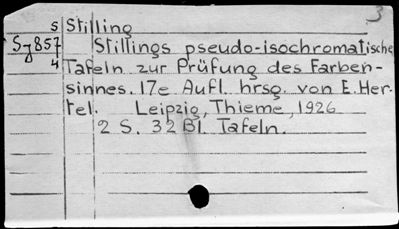 3
s Stilling
Sy857 Stillings pseudo-isochromatische
4 Tafeln zur Prüfung des Farben-
sinnes. 17e Aufl. hrsg. von E. Her-
tel. Leipzig, Thieme, 1926
2 S. 32 Bl. Tafeln.